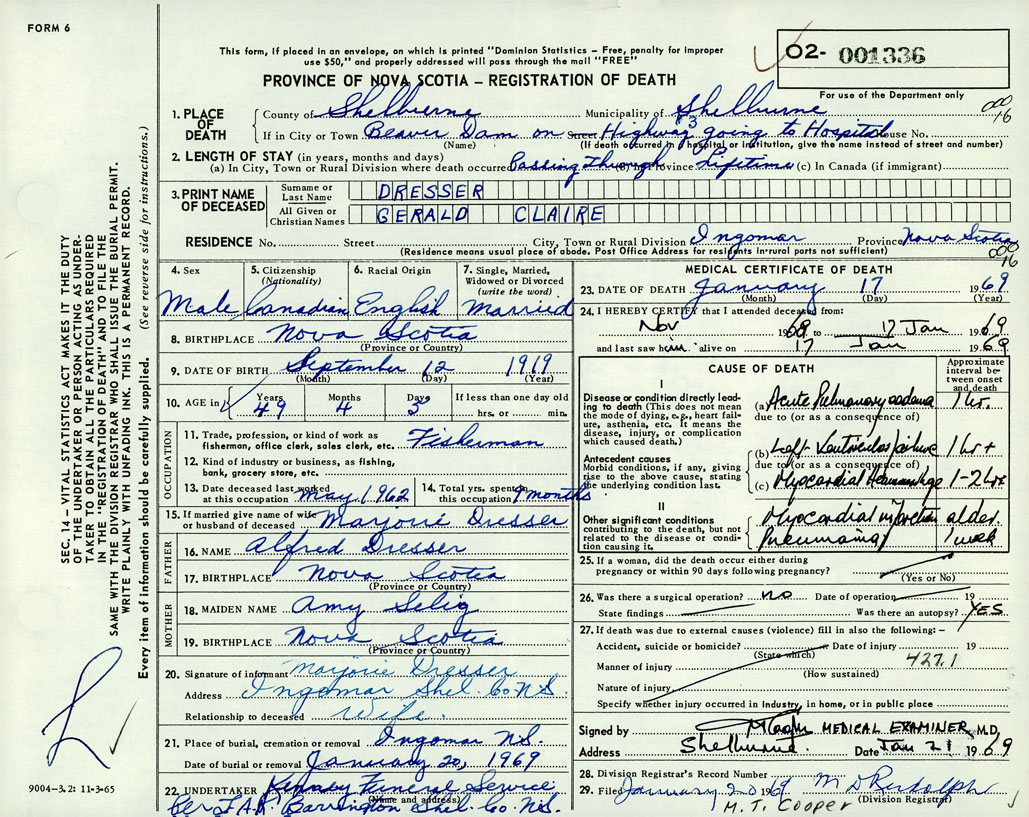 FORM 6
This form, if placed in an envelope, on which is printed "Dominion Statistics – Free, penalty for improper
use $50," and properly addressed will pass through the mail "FREE"
PROVINCE OF NOVA SCOTIA – REGISTRATION OF DEATH
02- 001336
For use of the Department only
1. PLACE OF DEATH
County of Shelburne Municipality of Shelburne
16
If in City or Town Beaver Dam on Street Highway 3 going to Hospital House No.
(Name) (If death occurred in hospital or institution, give the name instead of street and number)
2. LENGTH OF STAY (in years, months and days)
(a) In City, Town or Rural Division where death occurred Passing through (b) In Province Lifetime (c) In Canada (if immigrant)
3. PRINT NAME OF DECEASED
Surname or Last Name DRESSER
All Given or Christian Names GERALD CLAIRE
RESIDENCE No. Street City, Town or Rural Division Ingomar Province Nova Scotia
(Residence means usual place of abode. Post Office Address for residents in rural parts not sufficient)
16
4. Sex Male
5. Citizenship (Nationality) Canadian
6. Racial Origin English
7. Single, Married, Widowed or Divorced (write the word) Married
8. BIRTHPLACE Nova Scotia
(Province or Country)
9. DATE OF BIRTH September 12 1919
(Month) (Day) (Year)
10. AGE in Years 49 Months 4 Days 5 If less than one day old hrs. or min.
OCCUPATION
11. Trade, profession, or kind of work as fisherman, office clerk, sales clerk, etc. Fisherman
12. Kind of industry or business, as fishing, bank, grocery store, etc.
13. Date deceased last worked at this occupation May 1962
14. Total yrs. spent in this occupation 9 months
15. If married give name of wife or husband of deceased Marjorie Dresser
FATHER
16. NAME Alfred Dresser
17. BIRTHPLACE Nova Scotia
(Province or Country)
MOTHER
18. MAIDEN NAME Amy Selig
19. BIRTHPLACE Nova Scotia
(Province or Country)
20. Signature of informant Marjorie Dresser
Address Ingomar Shel. Co N.S.
Relationship to deceased Wife.
21. Place of burial, cremation or removal Ingomar N.S.
Date of burial or removal January 20, 1969
22. UNDERTAKER Kenney Funeral Service
(Name and address)
Barrington Shel. Co. N.S.
MEDICAL CERTIFICATE OF DEATH
23. DATE OF DEATH January 17 1969
(Month) (Day) (Year)
24. I HEREBY CERTIFY that I attended deceased from:
Nov 1968 to 17 Jan 1969
and last saw him alive on 17 Jan 1969
CAUSE OF DEATH
Approximate interval between onset and death
I
Disease or condition directly leading to death (This does not mean the mode of dying, e.g., heart failure, asthenia, etc. It means the disease, injury, or complication which caused death.)
(a) Acute Pulmonary oedema 1 hr.
due to (or as a consequence of)
Antecedent causes
Morbid conditions, if any, giving rise to the above cause, stating the underlying condition last.
(b) Left Ventricular failure 1 hr +
due to (or as a consequence of)
(c) Myocardial Hemorrhage 1-2 hrs
II
Other significant conditions contributing to the death, but not related to the disease or condition causing it.
Myocardial infarction older
Pneumonia 1 week
25. If a woman, did the death occur either during pregnancy or within 90 days following pregnancy?
(Yes or No)
26. Was there a surgical operation? NO Date of operation 19
State findings Was there an autopsy? YES
27. If death was due to external causes (violence) fill in also the following: –
Accident, suicide or homicide? Date of injury 19
(State which)
427.1
Manner of injury
(How sustained)
Nature of injury
Specify whether injury occurred in industry, in home, or in public place
Signed by MEDICAL EXAMINER M.D.
Address Shelburne. Date Jan 21 1969
28. Division Registrar's Record Number
29. Filed January 20 1969 M D Rudolph
(Division Registrar)
M. T. Cooper
SEC. 14 – VITAL STATISTICS ACT MAKES IT THE DUTY
OF THE UNDERTAKER OR PERSON ACTING AS UNDER-
TAKER TO OBTAIN ALL THE PARTICULARS REQUIRED
IN THE "REGISTRATION OF DEATH" AND TO FILE THE
SAME WITH THE DIVISION REGISTRAR WHO SHALL ISSUE THE BURIAL PERMIT.
WRITE PLAINLY WITH UNFADING INK. THIS IS A PERMANENT RECORD.
Every item of information should be carefully supplied. (See reverse side for instructions.)
9004–3.2: 11-3-65